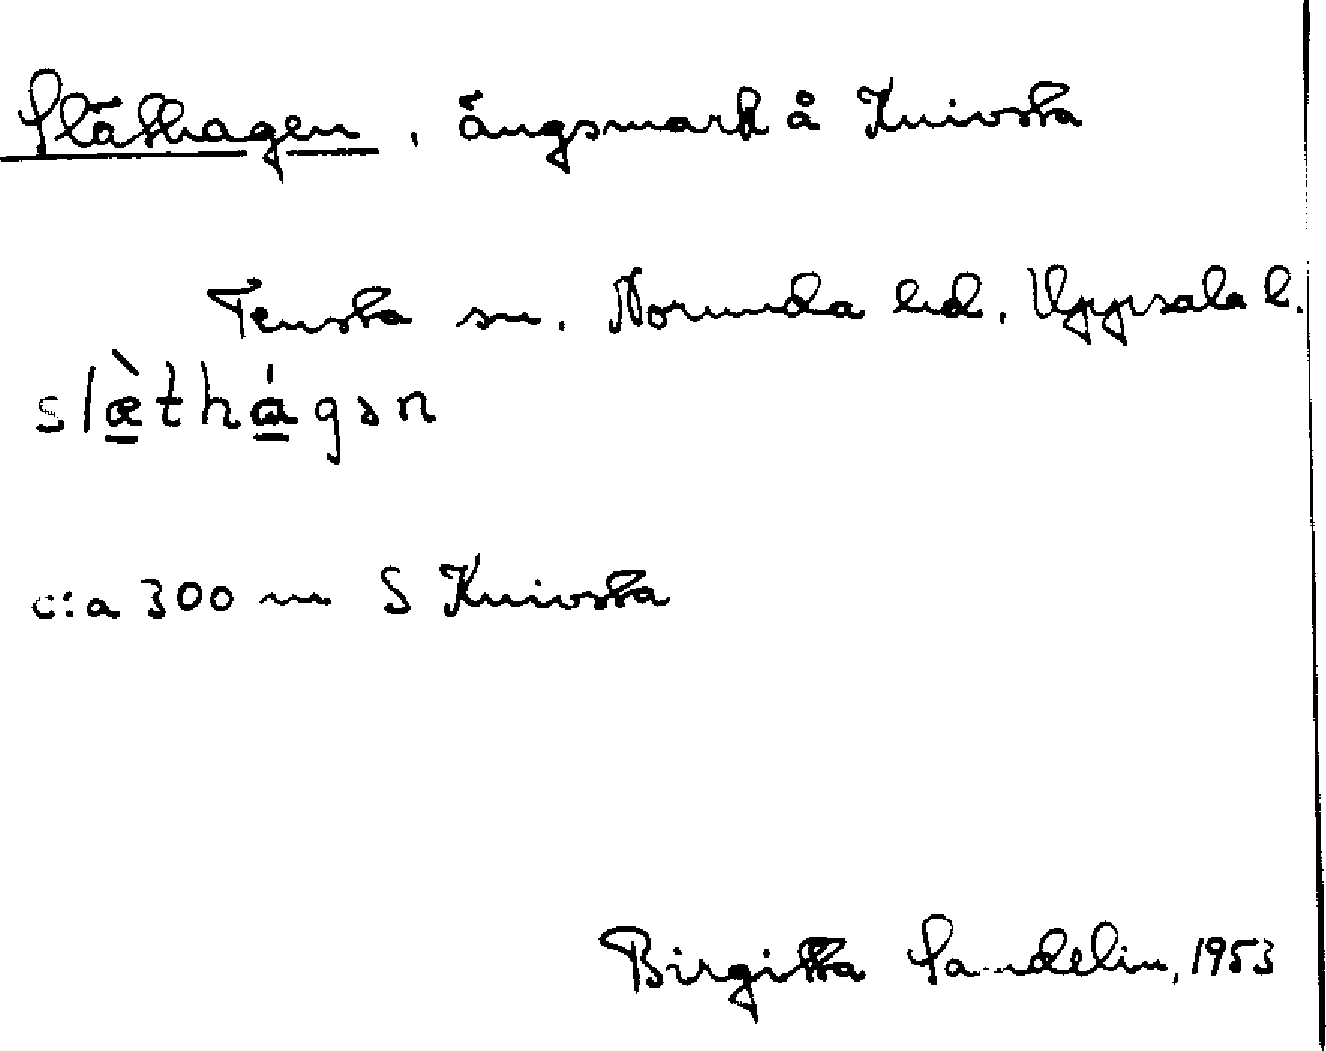 Släthagen, ängsmark å Knivsta
Tensta sn. Norunda hd. Uppsala l.
slæ̀thágən
c:a 300 m S Knivsta
Birgitta Sandelin, 1953